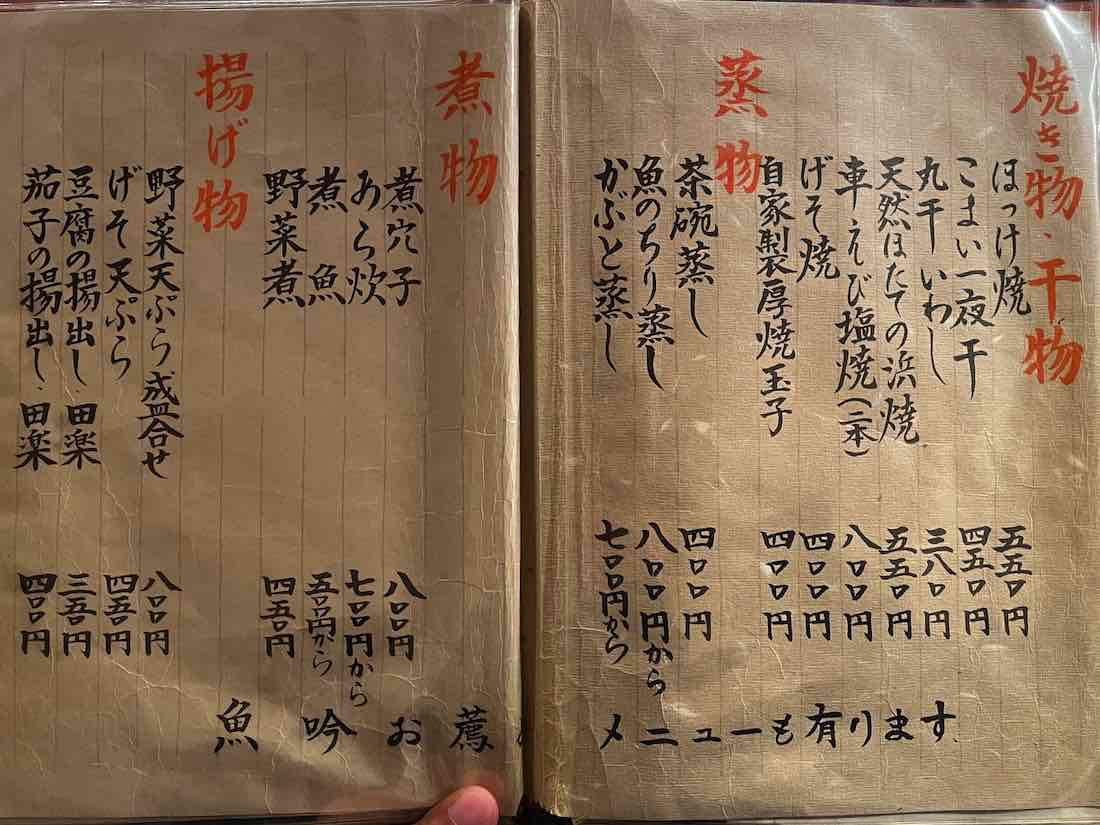 焼き物・干物
ほっけ焼 五五〇円
こまい一夜干 四五〇円
丸干いわし 三八〇円
天然ほたての浜焼 五五〇円
車えび塩焼(二本) 八〇〇円
げそ焼 四〇〇円
自家製厚焼玉子 四〇〇円
蒸物
茶碗蒸し 四〇〇円
魚のちり蒸し 八〇〇円から
かぶと蒸し 七〇〇円から
煮物
煮穴子 八〇〇円
あら炊 七〇〇円から
煮魚 五〇〇円から
野菜煮 四五〇円
揚げ物
野菜天ぷら盛合せ 八〇〇円
げそ天ぷら 四五〇円
豆腐の揚出し・田楽 三五〇円
茄子の揚出し・田楽 四〇〇円
魚吟お薦
メニューも有ります